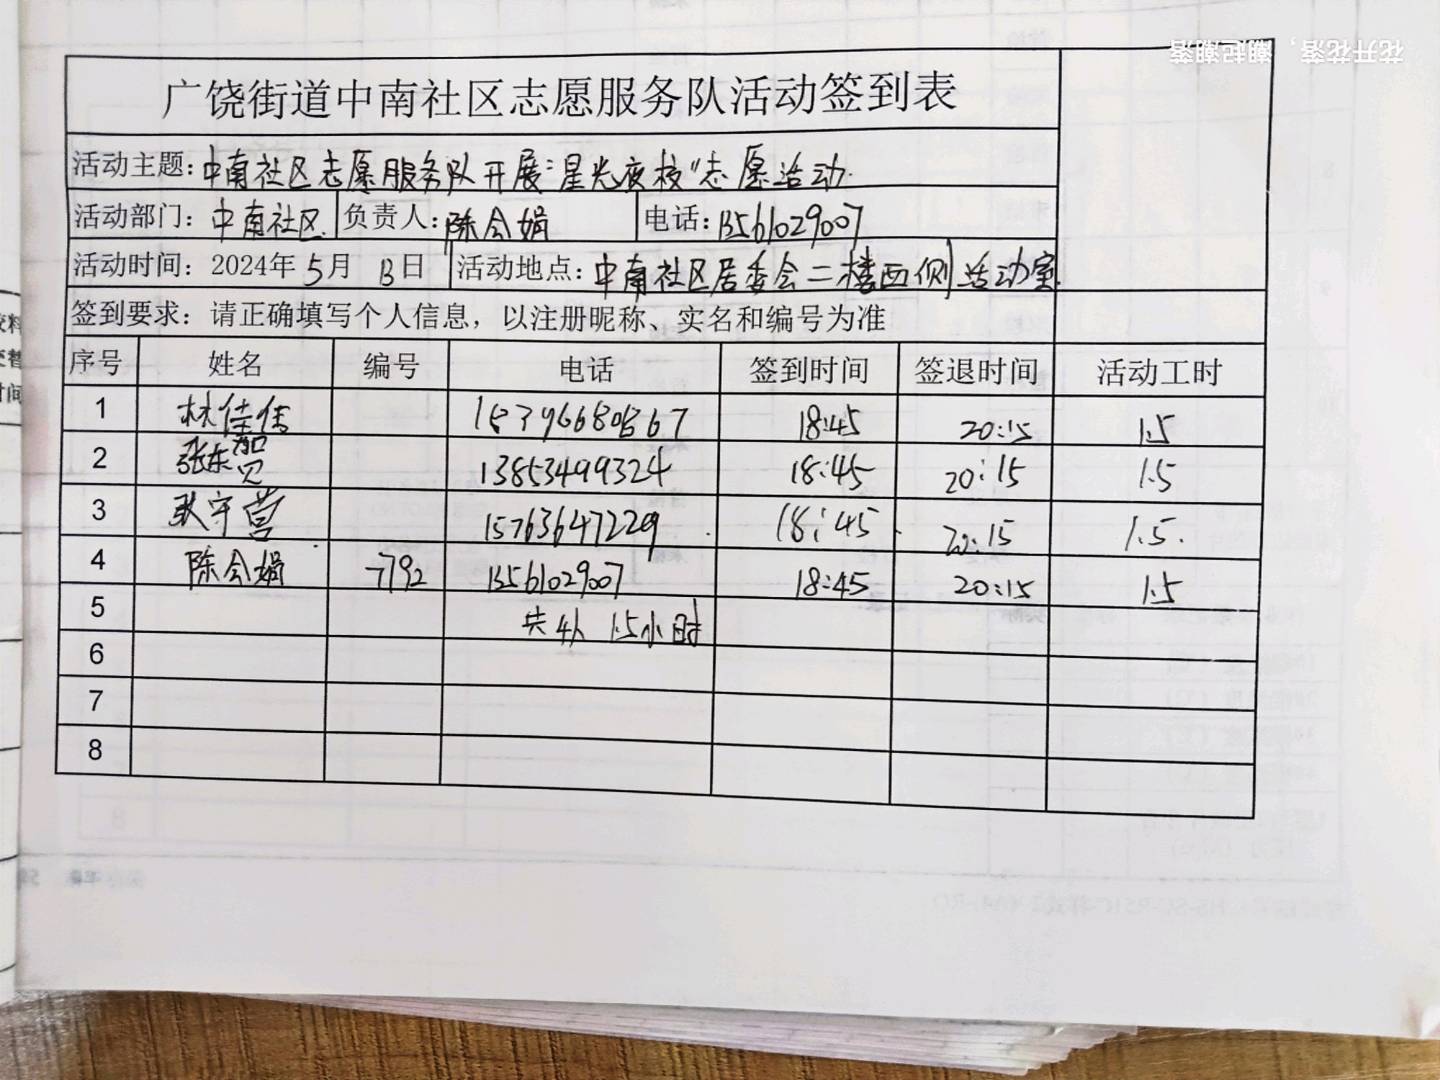 花开花落，潮起潮落
广饶街道中南社区志愿服务队活动签到表
活动主题：中南社区志愿服务队开展"星光夜校"志愿活动.
活动部门：中南社区 负责人：陈会娟 电话：13561029007
活动时间：2024年5月13日 活动地点：中南社区居委会二楼西侧活动室
签到要求：请正确填写个人信息，以注册昵称、实名和编号为准
序号 姓名 编号 电话 签到时间 签退时间 活动工时
1 林佳倩 18:45 20:15 1.5
2 张东贺 13853499324 18:45 20:15 1.5
3 耿守营 15763647229 18:45 20:15 1.5.
4 陈会娟 7192 13561029007 18:45 20:15 1.5
5 共4人 1.5小时
6
7
8